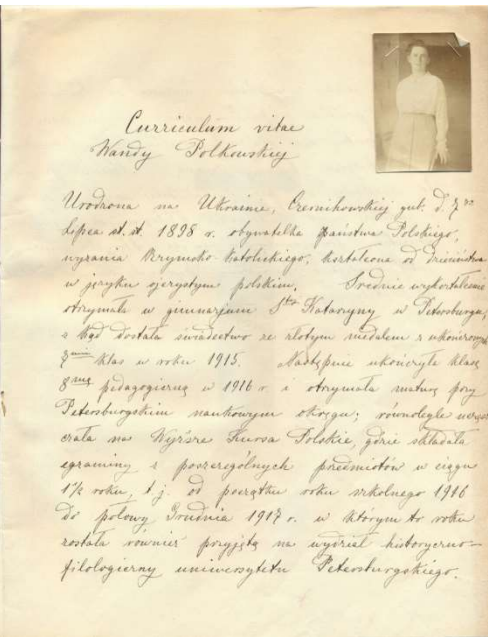 Curriculum vitae
Wandy Polkowskiej
Urodzona na Ukrainie, Czernihowskiej gub. d. 7go
Lipca st. st. 1898 r. obywatelka państwa Polskiego,
wyznania Rzymsko-Katolickiego, kształcona od dzieciństwa
w języku ojczystym polskim. Średnie wykształcenie
otrzymała w gimnazjum Stej Katarzyny w Petersburgu,
z kąd dostała świadectwo ze złotym medalem z ukończonych
7miu klas w roku 1915. Następnie ukończyła klasę
8mą pedagogiczną w 1916 r. i otrzymała maturę przy
Petersburgskim naukowym okręgu; równolegle uczęsz-
czała na Wyższe Kursa Polskie, gdzie składała
egzaminy z poszczególnych przedmiotów w ciągu
1½ roku, t. j. od początku roku szkolnego 1916
do połowy Grudnia 1917 r. w którym to roku
została również przyjętą na wydział historyczno-
filologiczny uniwersytetu Petersburgskiego.